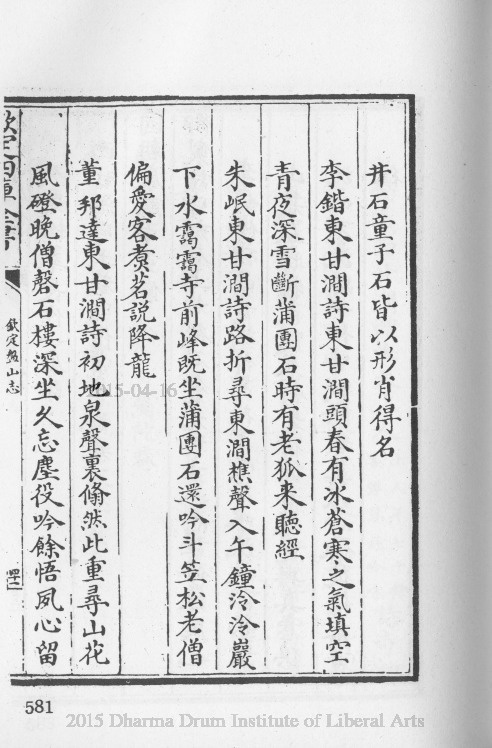 井石童子石皆以形肖得名
李鍇東甘澗詩東甘澗頭春有冰蒼寒之氣填空
青夜深雪斷蒲團石時有老狐來聽經
朱岷東甘澗詩路折尋東澗樵聲入午鐘泠泠巖
下水靄靄寺前峰既坐蒲團石還吟斗笠松老僧
偏愛客煑茗説降龍
董邦達東甘澗詩初地泉聲裏翛然此重尋山花
風磴晚僧磬石樓深坐久忘塵役吟餘悟夙心留
欽定四庫全書
欽定盤山志
四十二
2015-04-16
581
2015 Dharma Drum Institute of Liberal Arts